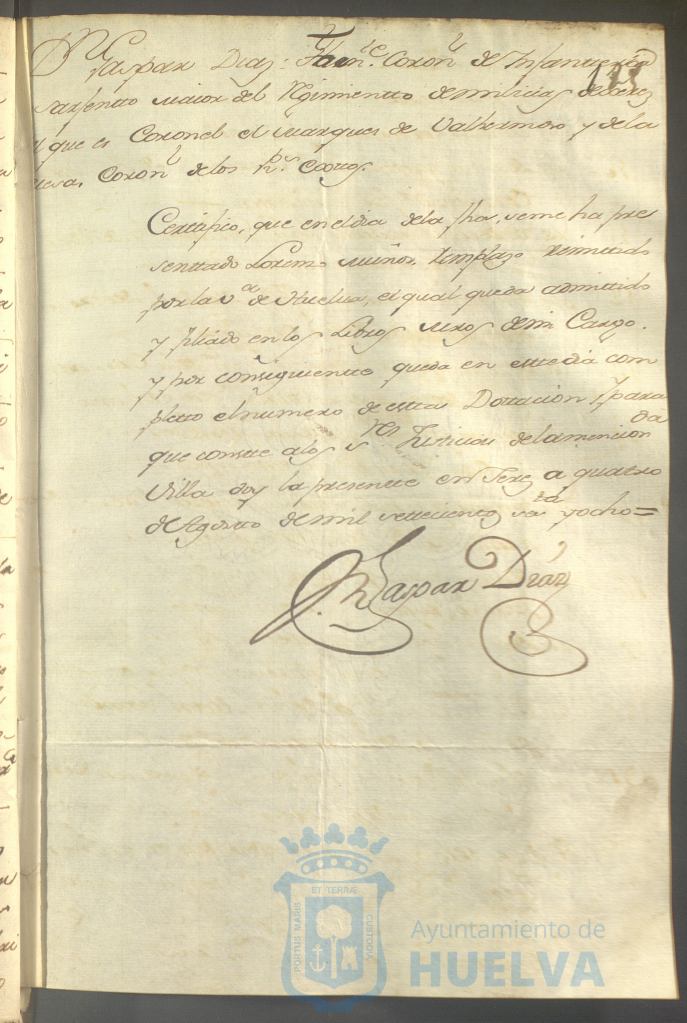 Dn. Gaspar Diaz: Thene. Coronl. de Infanteria
Sarjento maior del Regimiento de milicias de Xerez
y que es Coronel el Marques de Valhermoso y de la
Coronl. de los Rs. Exos.
Certifico, que en el dia de la fha, se me ha pre
senttado Lorenzo Muños, remplazo remitido
por la Va. de Huelva, el qual queda admittido
y filiado en los Libros de mi Cargo.
y por consiguiente queda en este dia com
pletto el numero de estta Dottacion, y para
que conste a los Sres. Justicias de la mencionada
Villa doy la presente en Xerez a quatro
de Agosto de mil settecientos sesta. y ocho=
Dn. Gaspar Diaz
PORTUS MARIS
ET TERRÆ
CUSTODIA
Ayuntamiento de
HUELVA